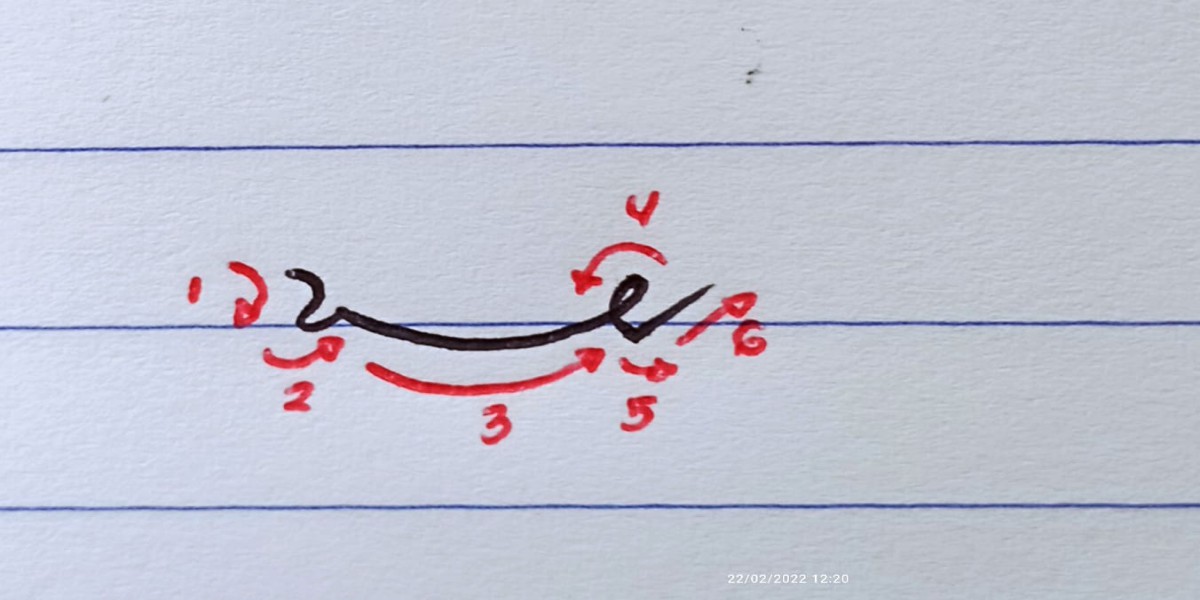 4
1
6
2
3
5
22/02/2022 12:20